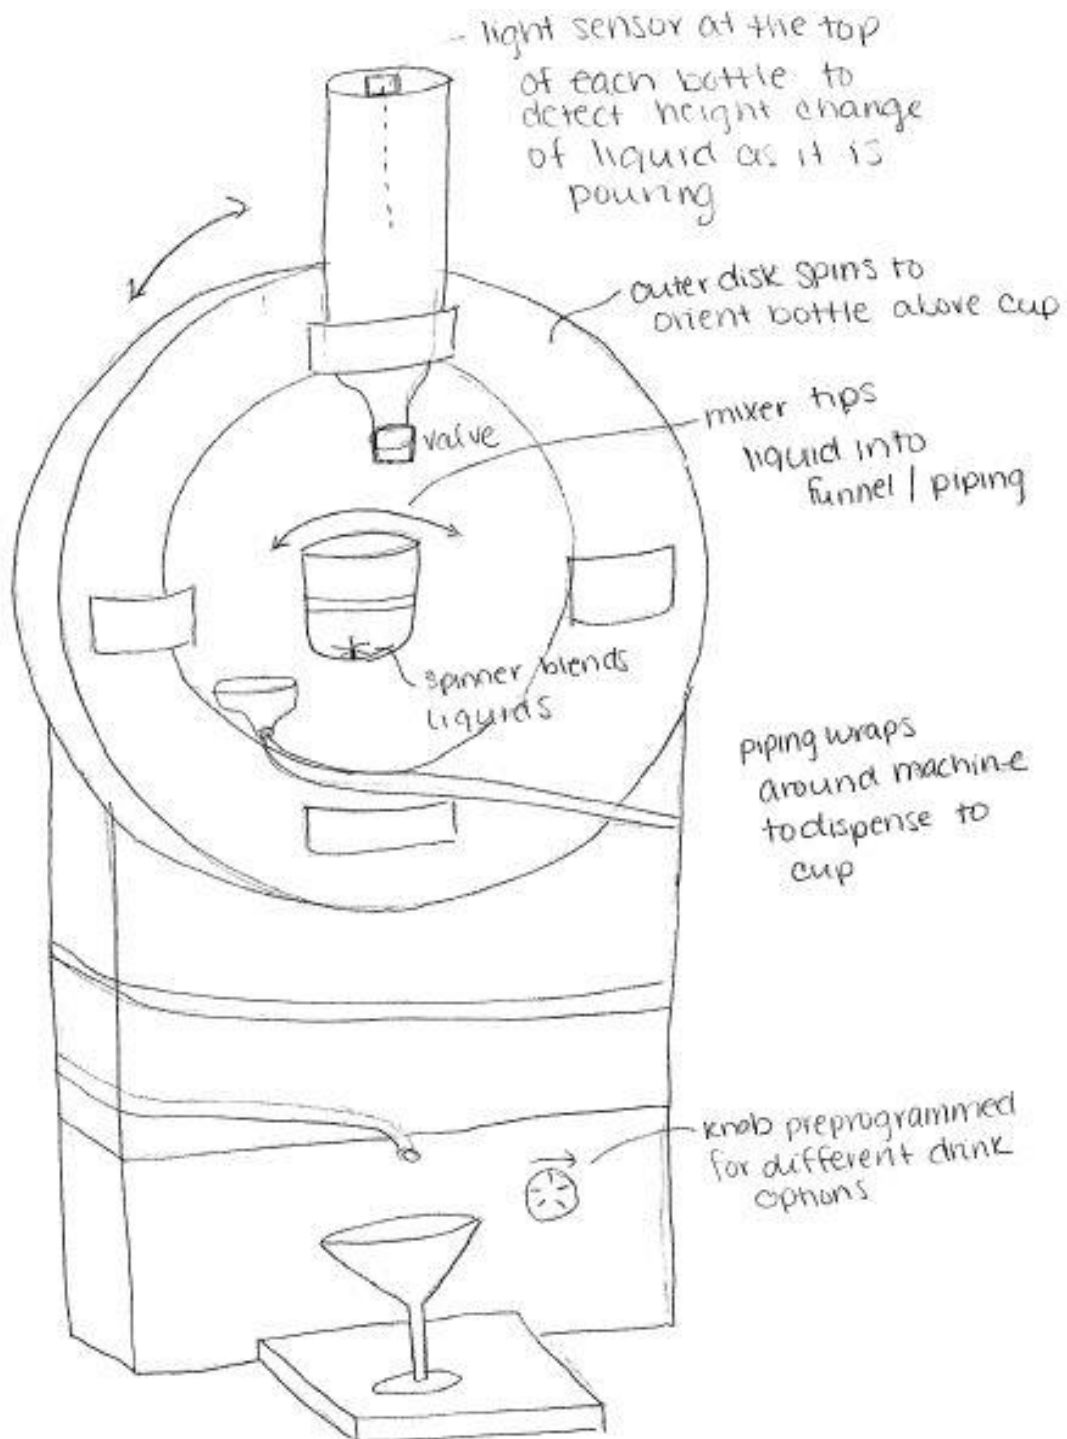 light sensor at the top
of each bottle to
detect height change
of liquid as it is
pouring
outer disk spins to
orient bottle above cup
mixer tips
liquid into
funnel / piping
valve
spinner blends
liquids
piping wraps
around machine
to dispense to
cup
knob preprogrammed
for different drink
options